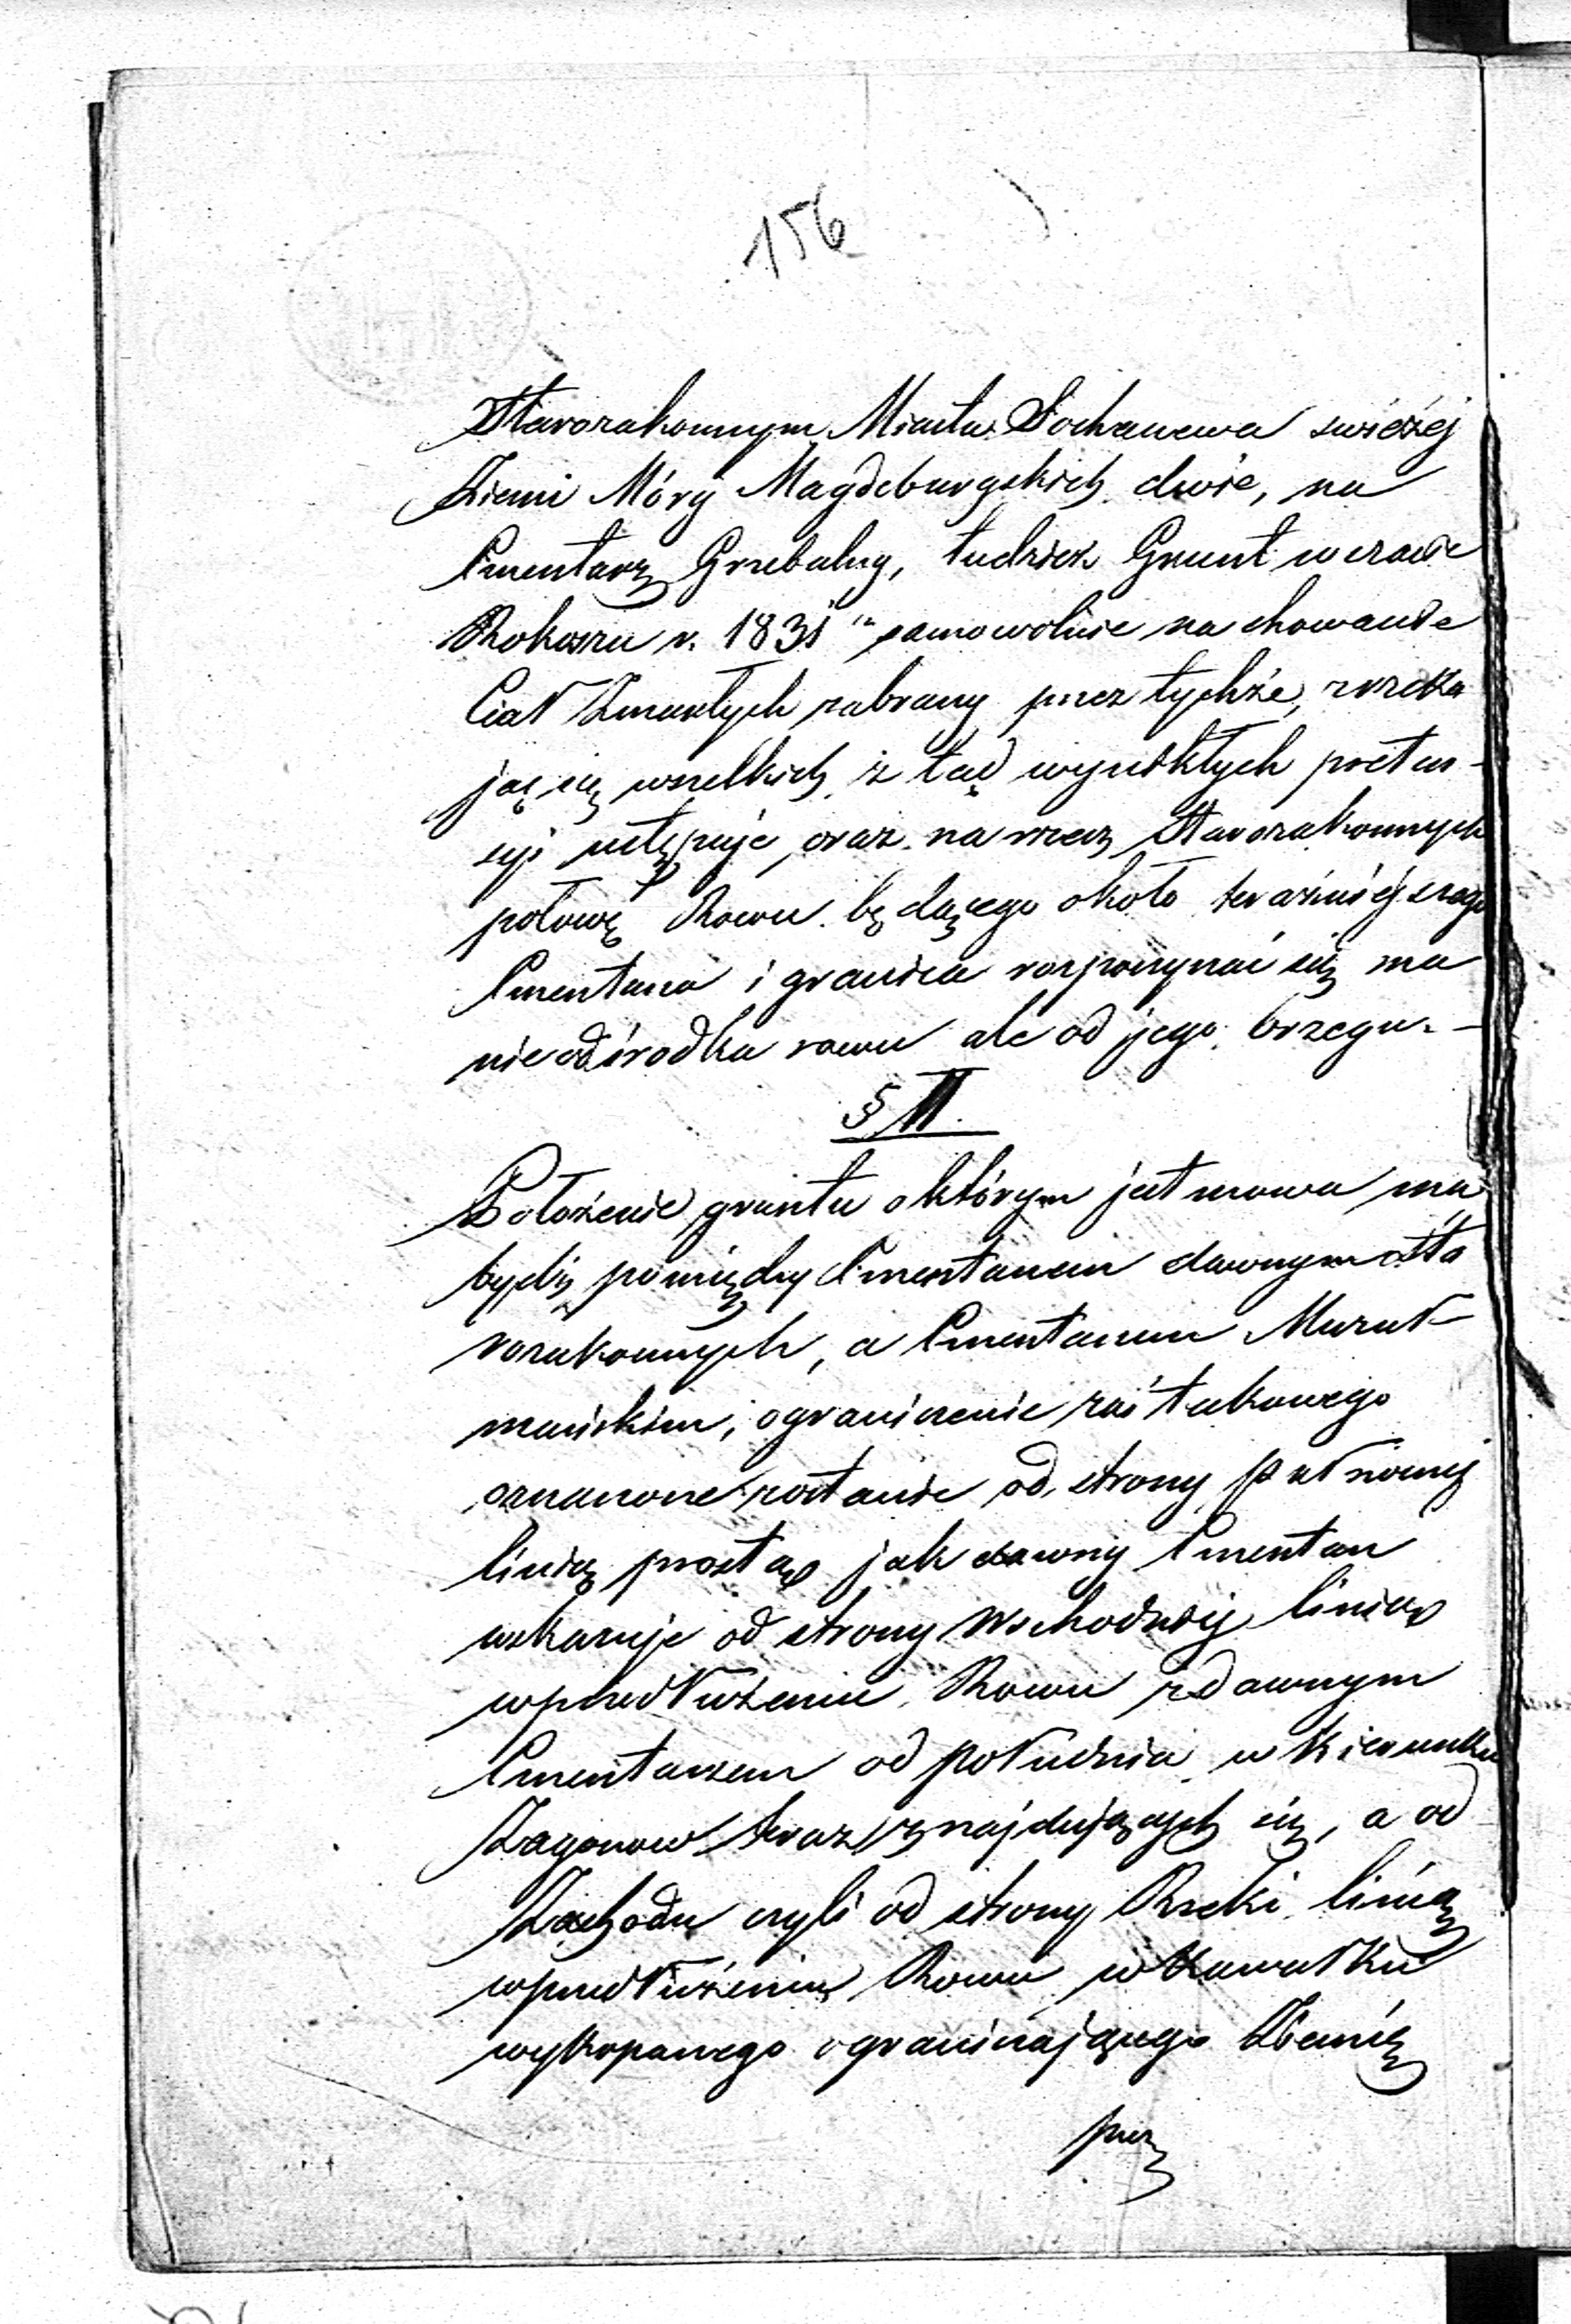 156
Starozakonnym Miasta Sochaczewa świeżej
Ziemi Mórg Magdeburgskich dwie, na
Cmentarz Grzebalny, tudzież Grunt w czasie
Rokoszu r. 1831 samowolnie na chowanie
Ciał Zmarłych zabrany przez tychże, zrzeka
jąc się wszelkich z tąd wynikłych preten-
syi ustępuje, oraz na rzecz Starozakonnych
połowę Rowu będącego około teraźniejszego
Cmentarza i granica rozpoczynać się ma
nie od środka rowu ale od jego brzegu.—
§ II.
Położenie gruntu o którym jest mowa ma
bydź pomiędzy Cmentarzem dawnym Sta
rozakonnych, a Cmentarzem Muzuł-
mańskim, ograniczenie zaś takowego
oznaczone zostanie od strony Północnej
linią prostą jak dawny Cmentarz
wskazuje od strony Wschodniej linią
w przedłużeniu Rowu z dawnym
Cmentarzem od południa w kierunku
Zagonow teraz znajdujących się, a od
Zachodu czyli od strony Rzeki linią
w przedłużeniu Rowu w kawałku
wykopanego ograniczającego Ziemię
przez